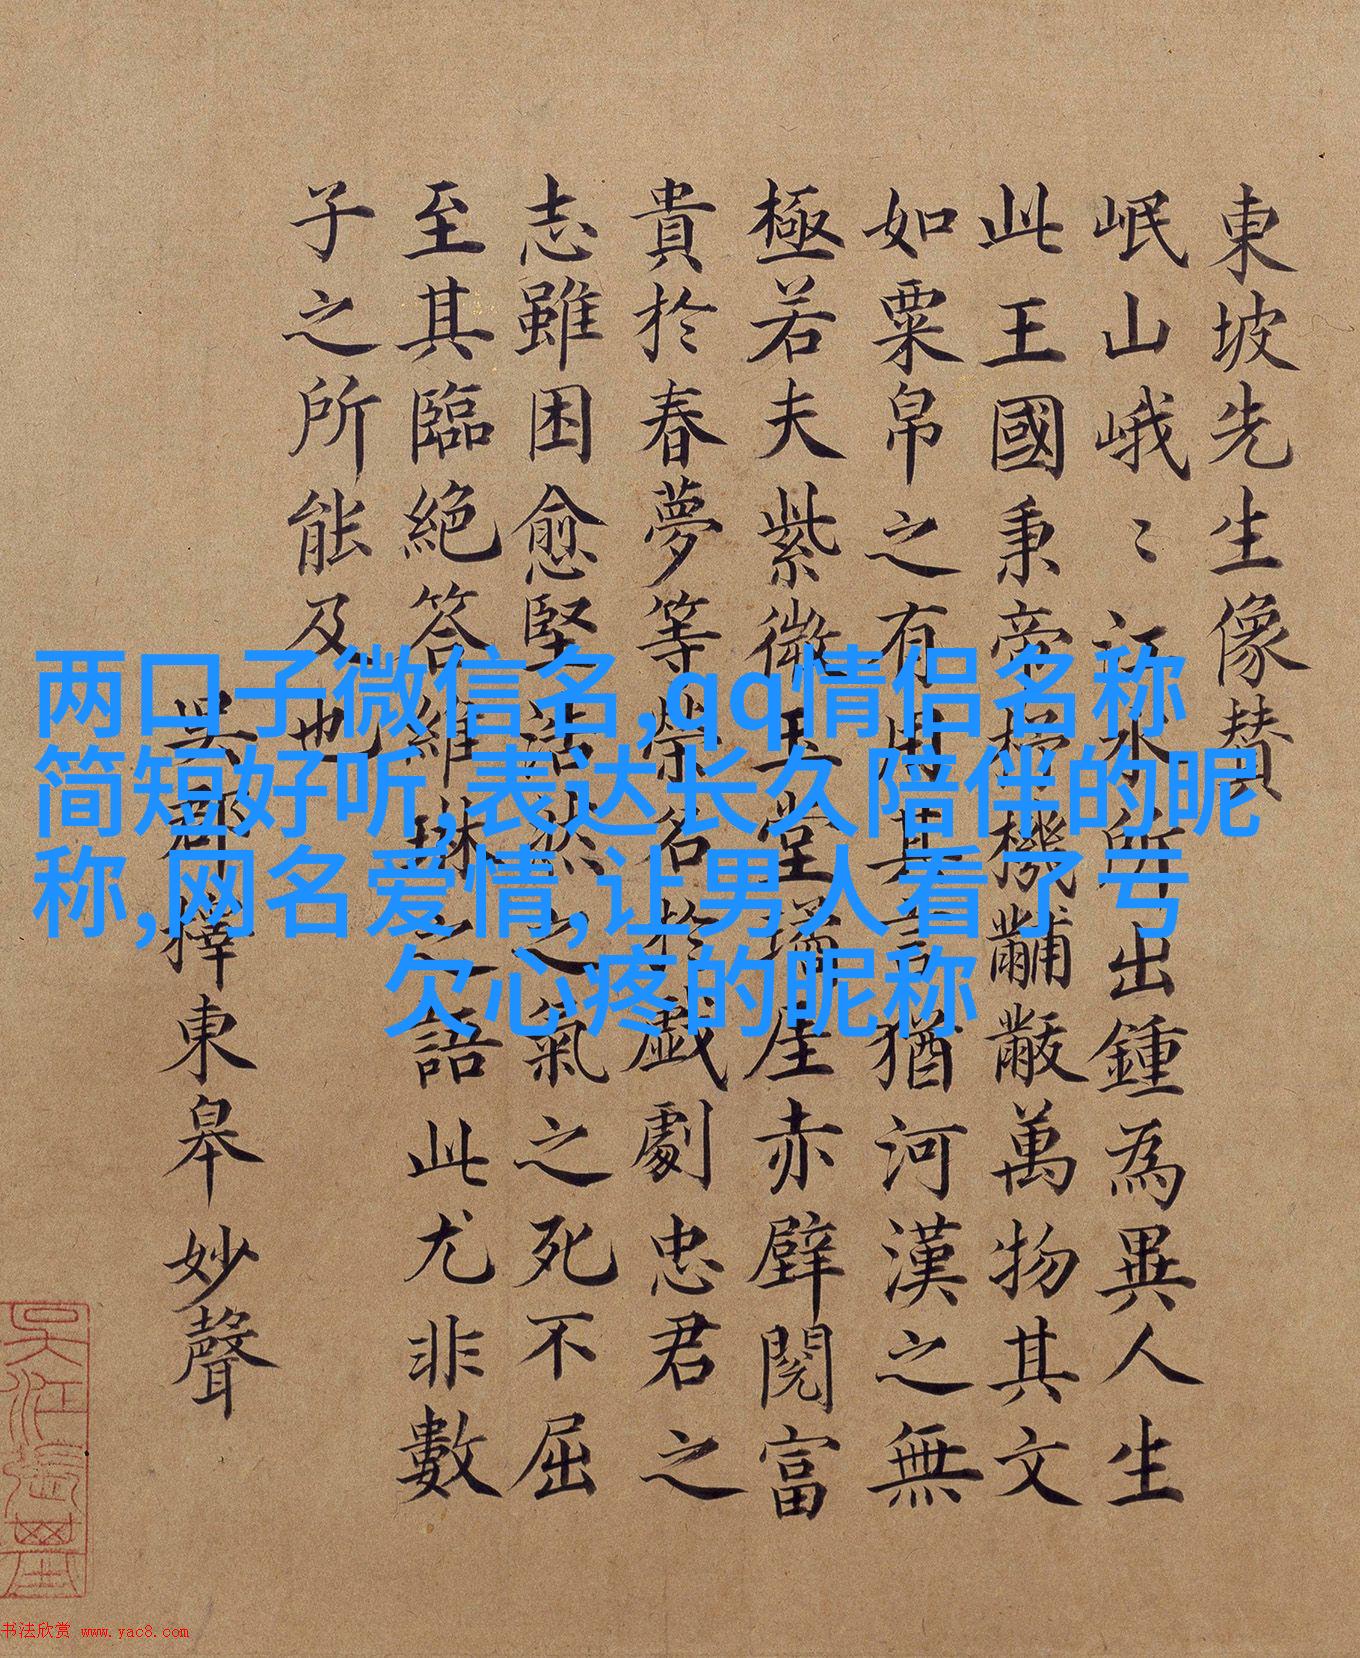 東坡先生像贊
岷山峨〻江水所出鍾為異人生
此王國秉帝杼機黼黻萬物其文
如粟帛之有用其言猶河漢之無
極若夫紫微玉堂瓊崖赤壁閱富
貴於春夢等榮名於戲劇忠君之
志雖困愈堅浩然之氣之死不屈
至其臨絕答維琳之語此尤非數
子之所能及也
吳郡釋東皋妙聲
两口子微信名,qq情侣名称
简短好听,表达长久陪伴的昵
称,网名爱情,让男人看了亏
欠心疼的昵称
书法欣赏 www.yac8.com